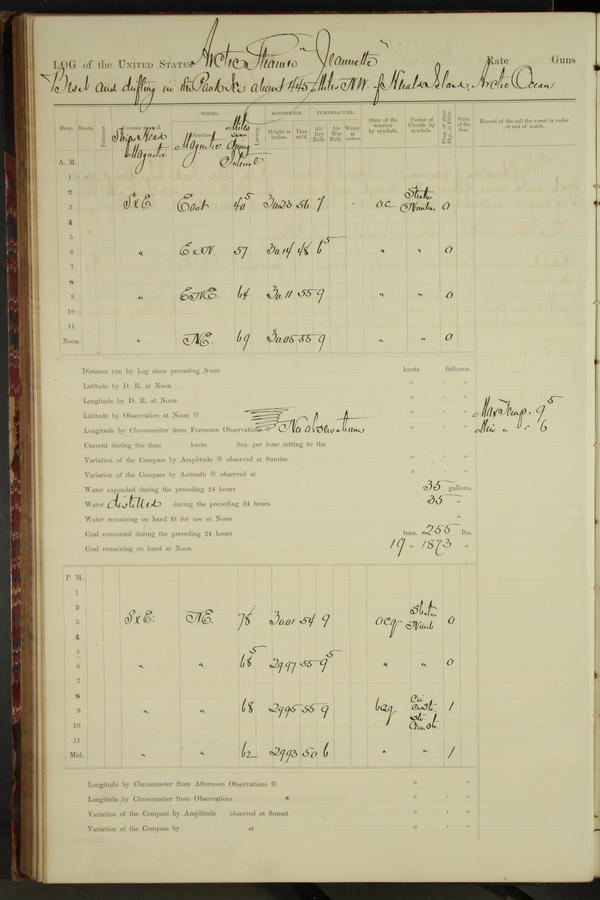 LOG of the UNITED STATES Arctic Steamer "Jeannette" Rate Guns
Beset and drifting in the Pack Ice about 445 Miles N.W. of Herald Island, Arctic Ocean
Hour. Knots. Fathoms. Courses steered. WINDS. Direction. Leeway. BAROMETER. Height in inches. Ther. att'd. TEMPERATURE. Air Dry Bulb. Air Wet Bulb. Water at surface. State of the weather by symbols. Forms of Clouds by symbols. Prop. of clear Sky, in 10ths. State of the Sea. Record of the sail the vessel is under at end of watch.
Ship's Head Magnetic Magnetic Miles during Interval
A. M.
1
2
3 S x E East 40 5 30.23 56 7 oc Strata Nimbus 0
4
5
6 " ExN. 57 30.14 48 6 5 " " 0
7
8
9 " ENE 64 30.11 55 9 " " 0
10
11
Noon. " NE. 69 30.05 55 9 " " 0
Distance run by Log since preceding Noon knots fathoms.
Latitude by D. R. at Noon ° ' "
Longitude by D. R. at Noon ° ' "
Latitude by Observation at Noon ⊙ ° ' " Max Temp. 9 5
Longitude by Chronometer from Forenoon Observations ⊙ No observations ° ' " Min " . 6
Current during the time knots fms. per hour setting to the
Variation of the Compass by Amplitude ⊙ observed at Sunrise ° ' "
Variation of the Compass by Azimuth ⊙ observed at ° ' "
Water expended during the preceding 24 hours 35 gallons.
Water distilled during the preceding 24 hours 35 "
Water remaining on hand fit for use at Noon "
Coal consumed during the preceding 24 hours tons. 255 lbs.
Coal remaining on hand at Noon 19 " 1873 "
P. M.
1
2
3 S x E. NE. 78 30.01 54 9 ocq Strata Nimb 0
4
5
6 " " 68 5 29.97 55 9 5 " " 0
7
8
9 " " 68 29.95 55 9 bcq. Cir Cir Str 1
10
11
Mid. " " 62 29.93 50 6 " " 1
Longitude by Chronometer from Afternoon Observations ⊙ ° ' "
Longitude by Chronometer from Observations * ° ' "
Variation of the Compass by Amplitude observed at Sunset ° ' "
Variation of the Compass by at ° ' "